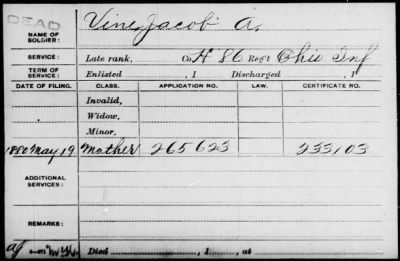 DEAD
NAME OF SOLDIER: Vine, Jacob A.
SERVICE: Late rank, Co. H 86 Reg't Ohio Inf
TERM OF SERVICE: Enlisted , 1 Discharged , 1
DATE OF FILING. CLASS. APPLICATION NO. LAW. CERTIFICATE NO.
Invalid,
Widow,
Minor,
1880 May 19 Mother 265623 233103
ADDITIONAL SERVICES:
REMARKS:
Died , 1 , at